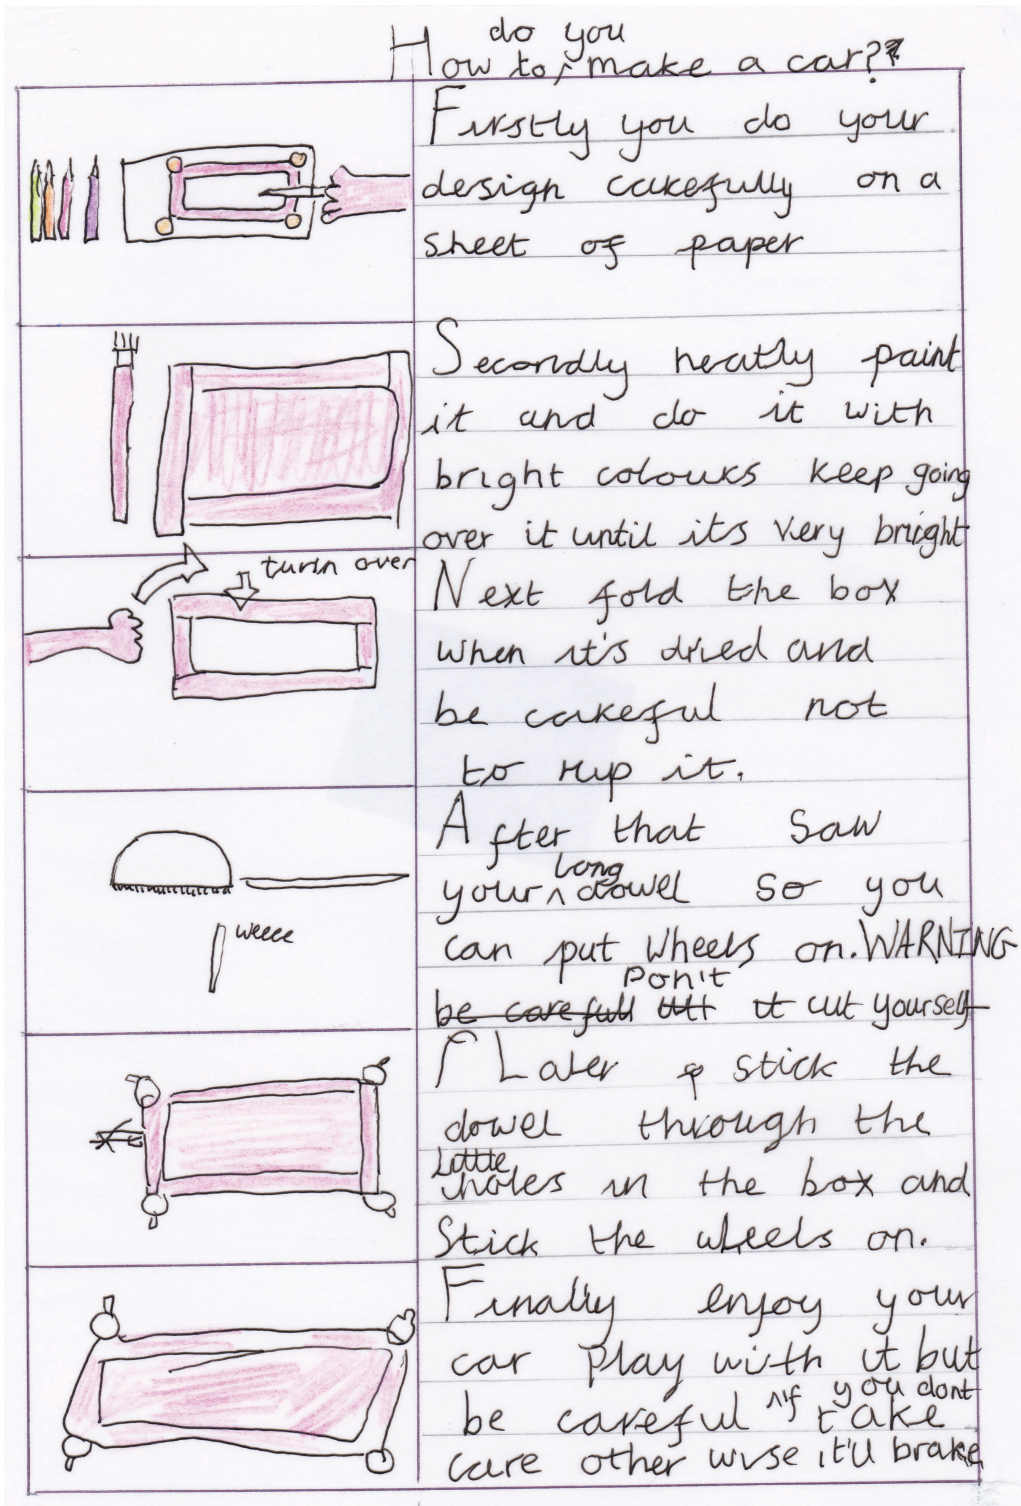 do you
How to ^ make a car?
Firstly you do your
design carefully on a
sheet of paper
Secondly neatly paint
it and do it with
bright colours keep going
over it until it's very bright
turn over
Next fold the box
when it's dried and
be careful not
to rip it.
After that saw
long
your ^ dowel so you
can put wheels on. WARNING
Don't
be carefull it cut yourself
weeee
Later stick the
dowel through the
little
holes in the box and
Stick the wheels on.
Finally enjoy your
car play with it but
be careful ^ if you dont take
care other wise it'll brake